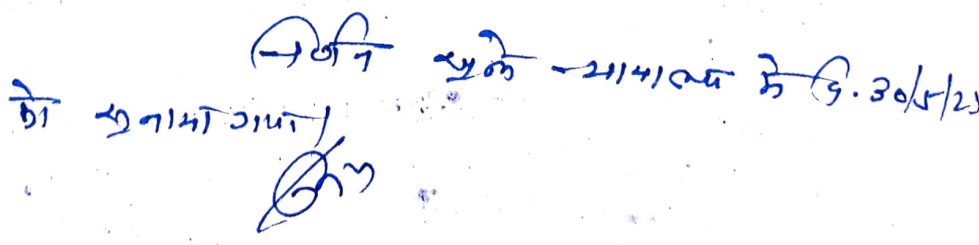 निर्णय खुले न्यायालय में दि. 30/5/23
को सुनाया गया।